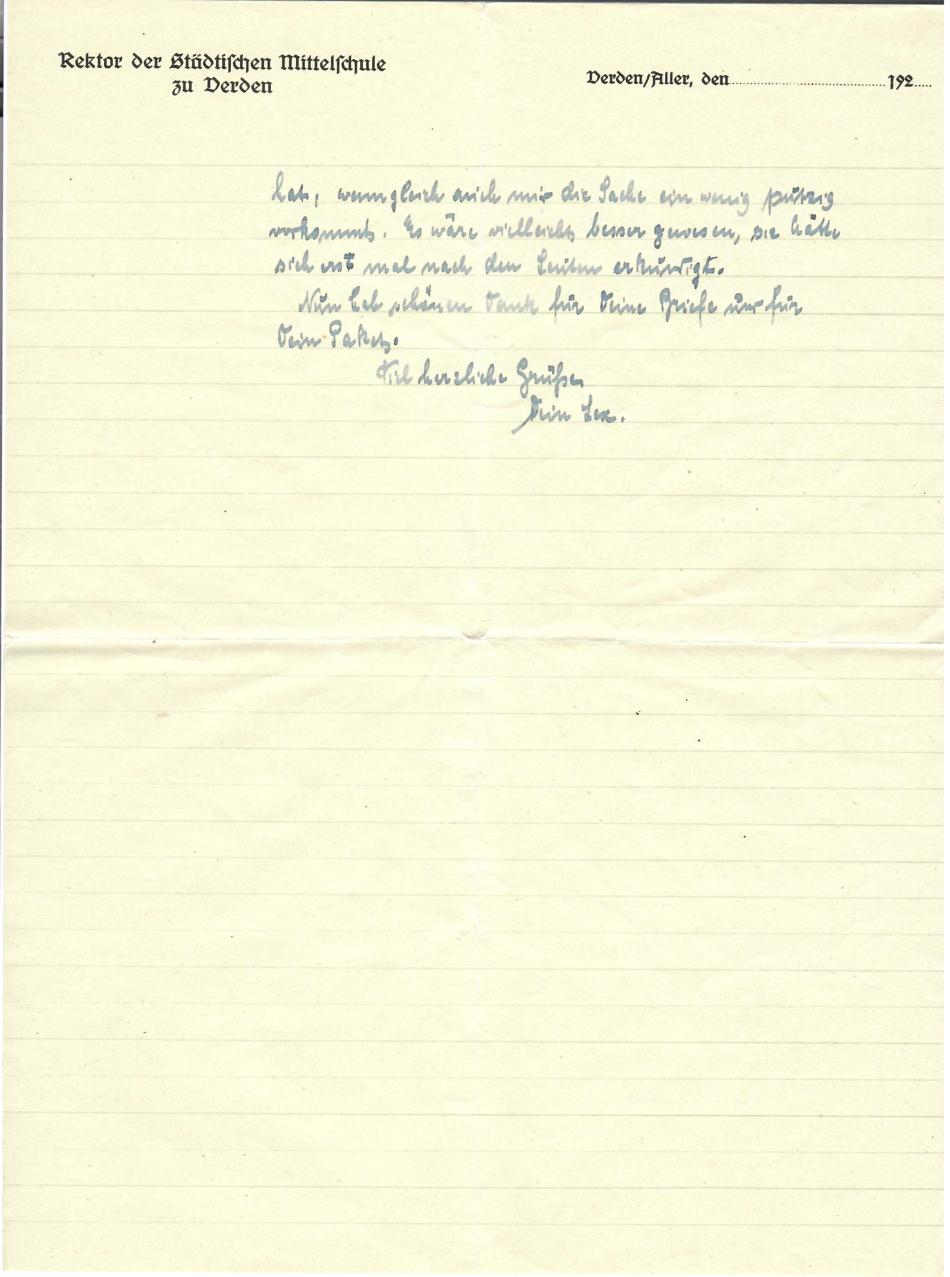 Rektor der Städtischen Mittelschule
zu Verden
Verden/Aller, den 192
hat, wenngleich auch mir die Sache ein wenig putzig
vorkommt. Es wäre vielleicht besser gewesen, sie hätte
sich erst mal nach den Leuten erkundigt.
Nun hab schönen Dank für Deine Briefe und für
Dein Paket.
Viel herzliche Grüße
Dein